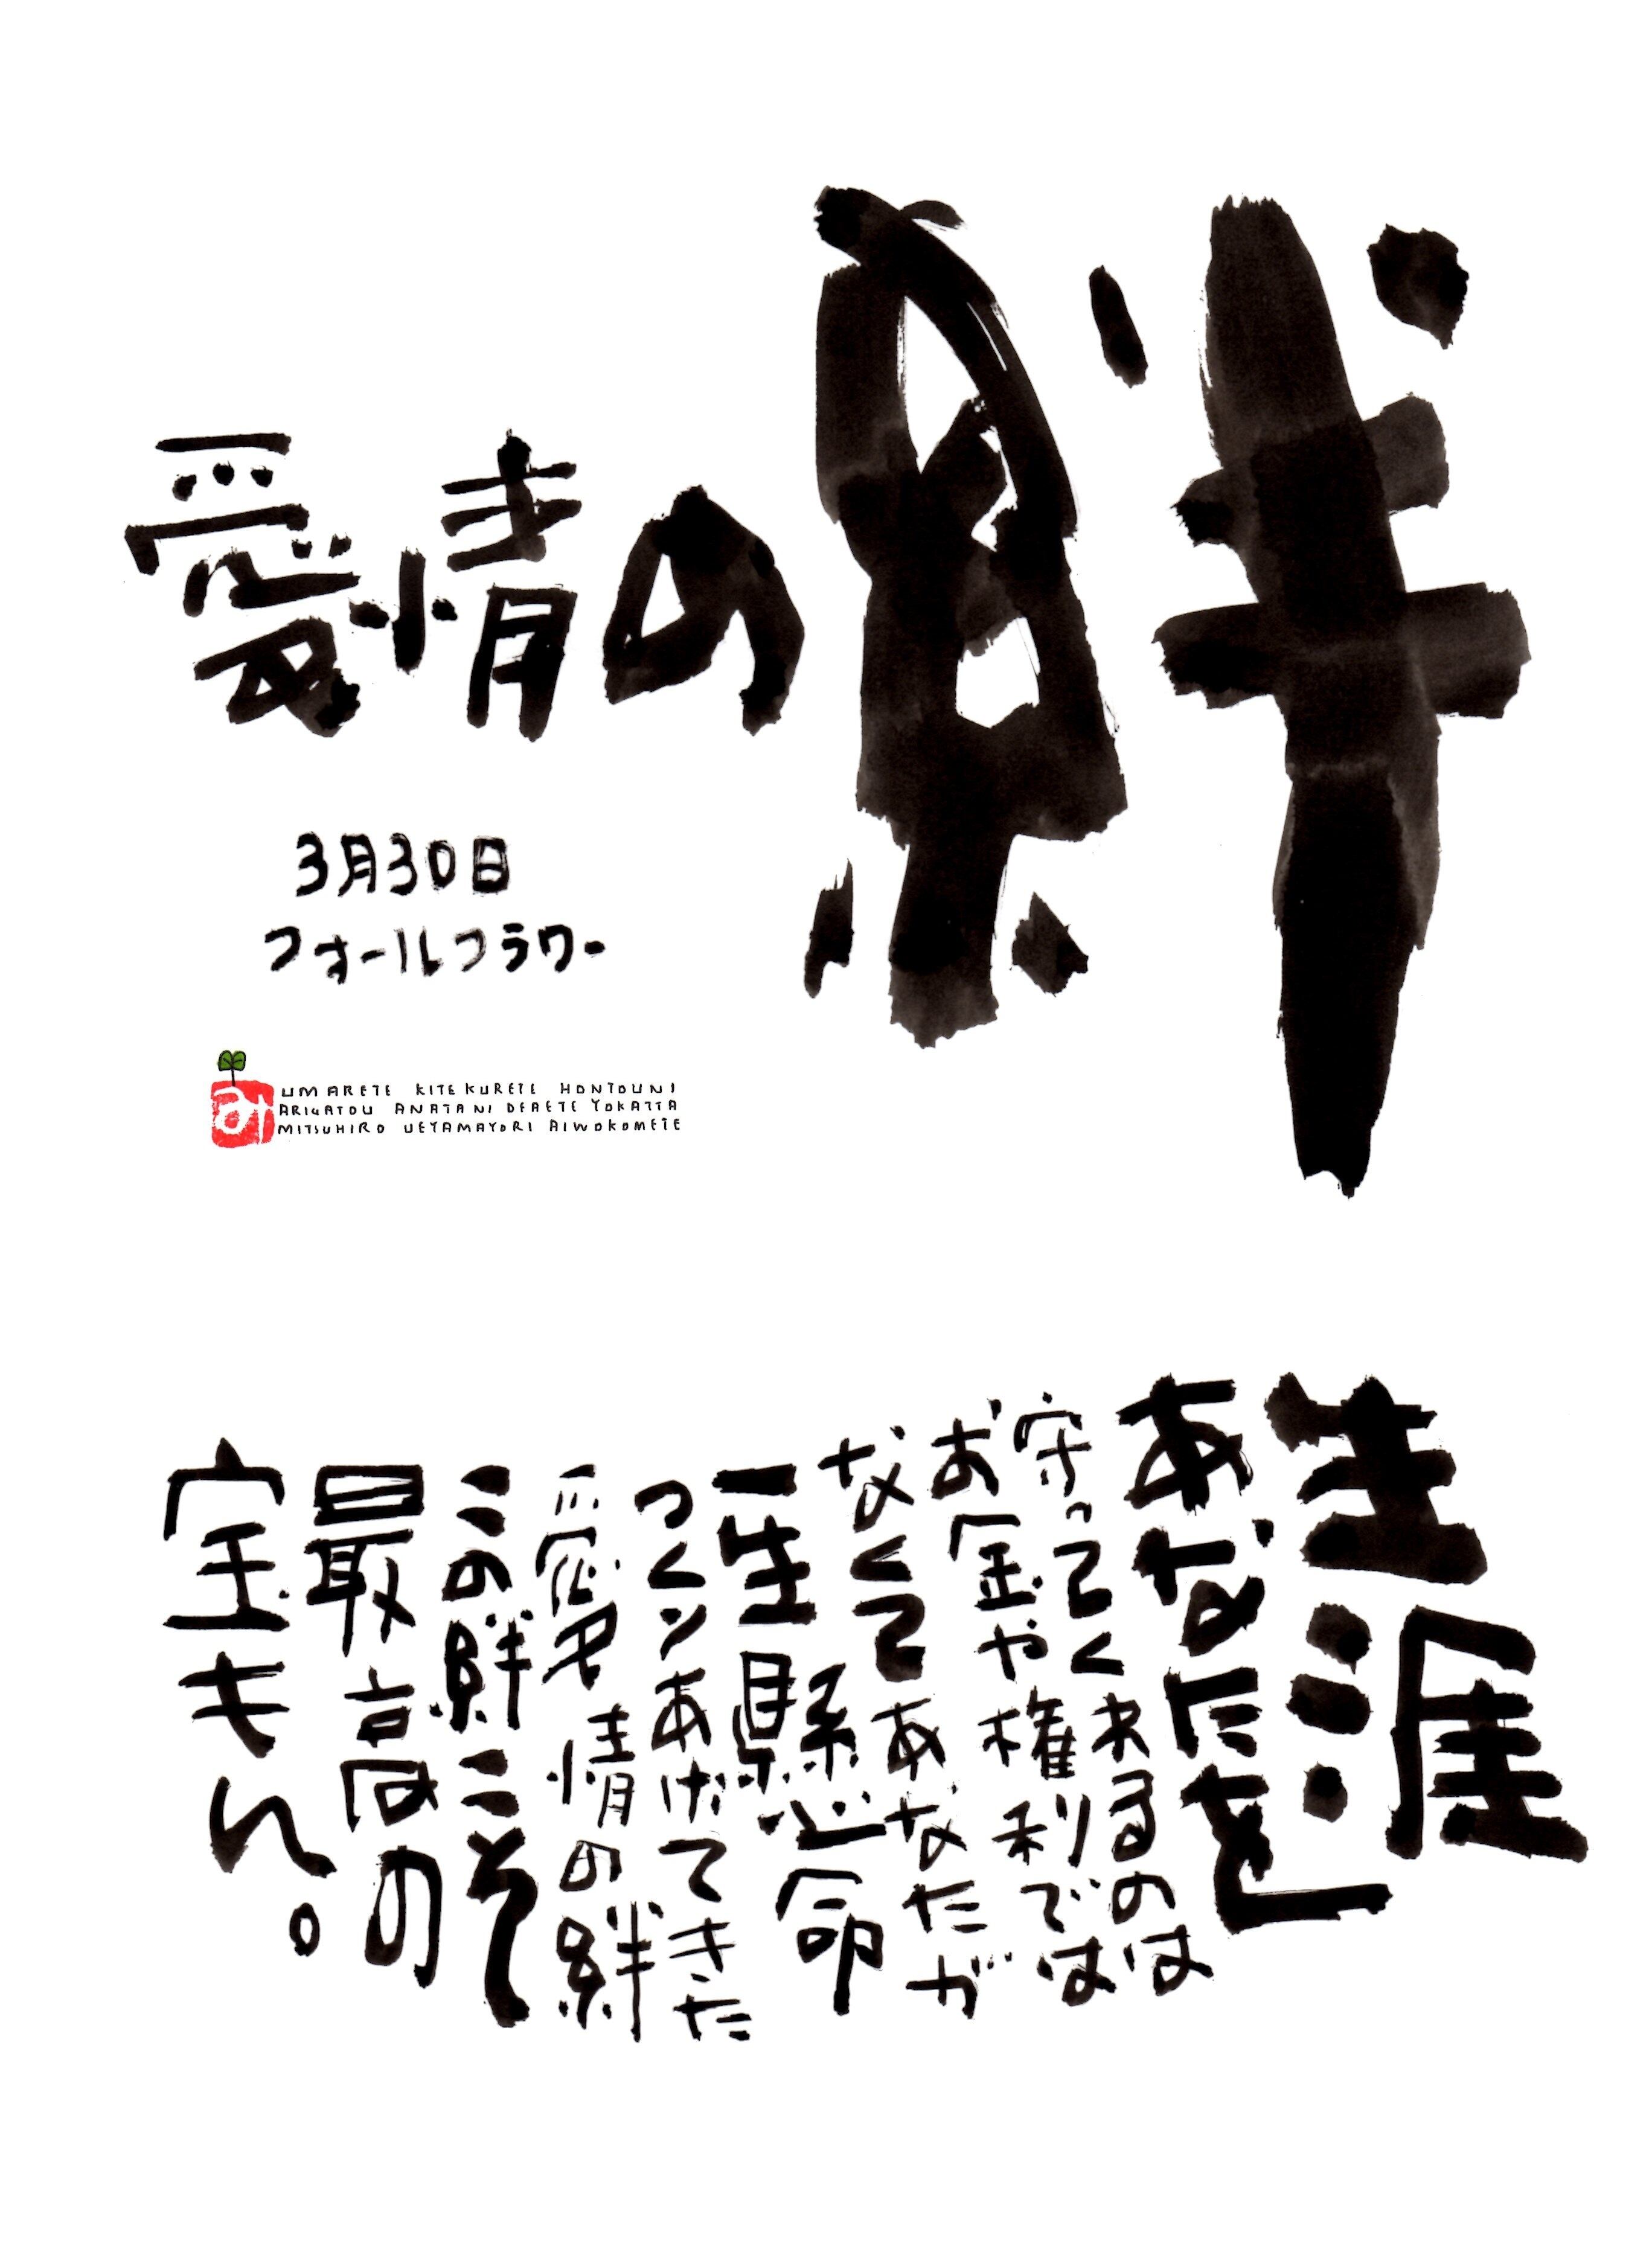 愛情の絆
3月30日
フォールフラワー
み
UMARETE KITEKURETE HONTOUNI
ARIGATOU ANATANI DEAETE YOKATTA
MITSUHIRO UEYAMAYORI AIWOKOMETE
生涯
あなたを
守ってくれるのは
お金や権利では
なくてあなたが
一生懸命
つくりあげてきた
愛情の絆
この絆こそ
最高の
宝もん。